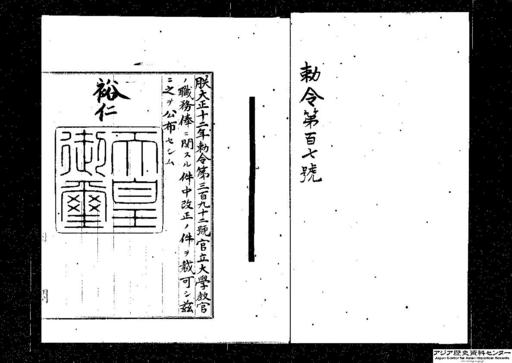 勅令第百七號
朕大正十二年勅令第三百九十二號官立大學教官
ノ職務俸ニ関スル件中改正ノ件ヲ裁可シ茲
ニ之ヲ公布セシム
裕仁
天皇
御璽
アジア歴史資料センター
Japan Center for Asian Historical Records